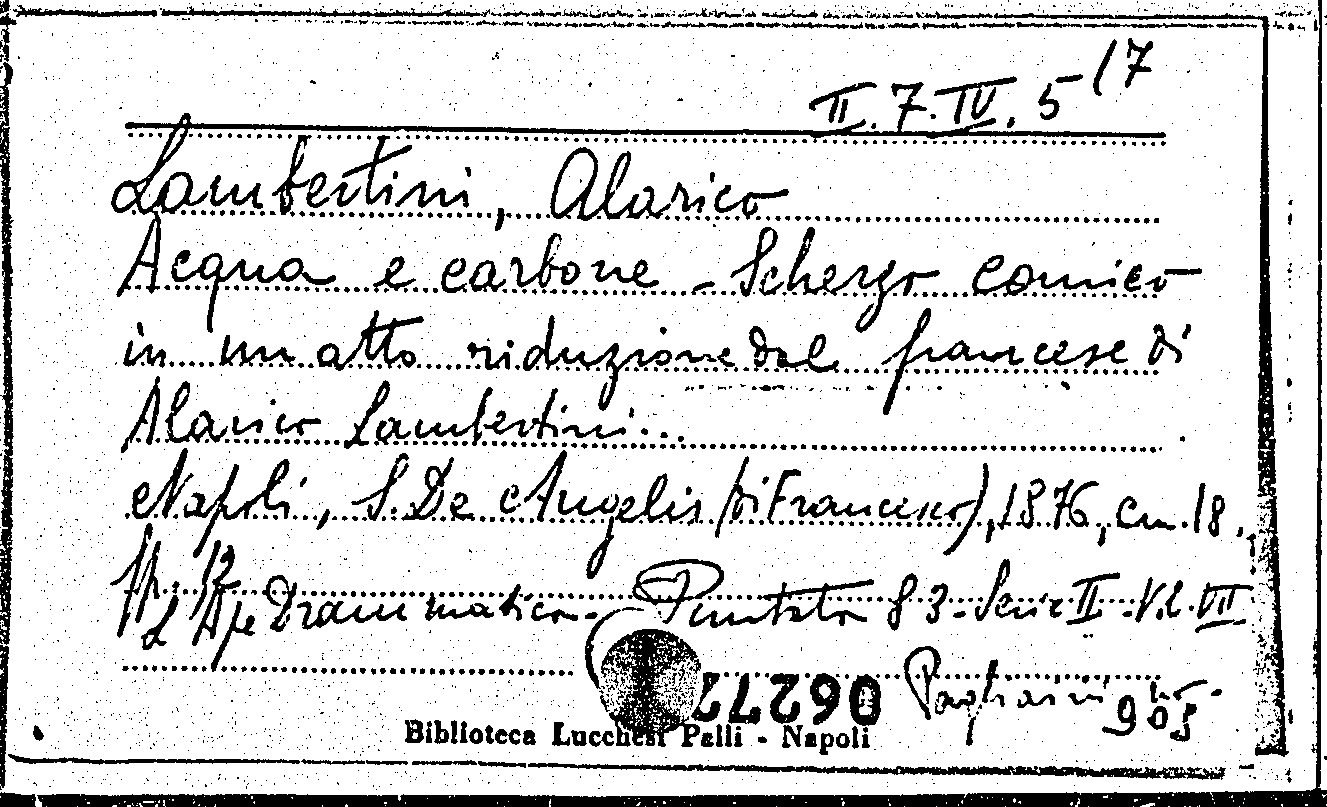 II. 7. IV. 5 /7
Lambertini, Alarico
Acqua e carbone - Scherzo comico
in un atto riduzione dal francese di
Alarico Lambertini...
Napoli, S. De Angelis (di Francesco), 1876, cm. 18.
pp. 12
L'Ape Drammatica - Puntata 83 - Serie II - Vol. VII
Pagliaini
905
06272
Biblioteca Lucchesi Palli - Napoli